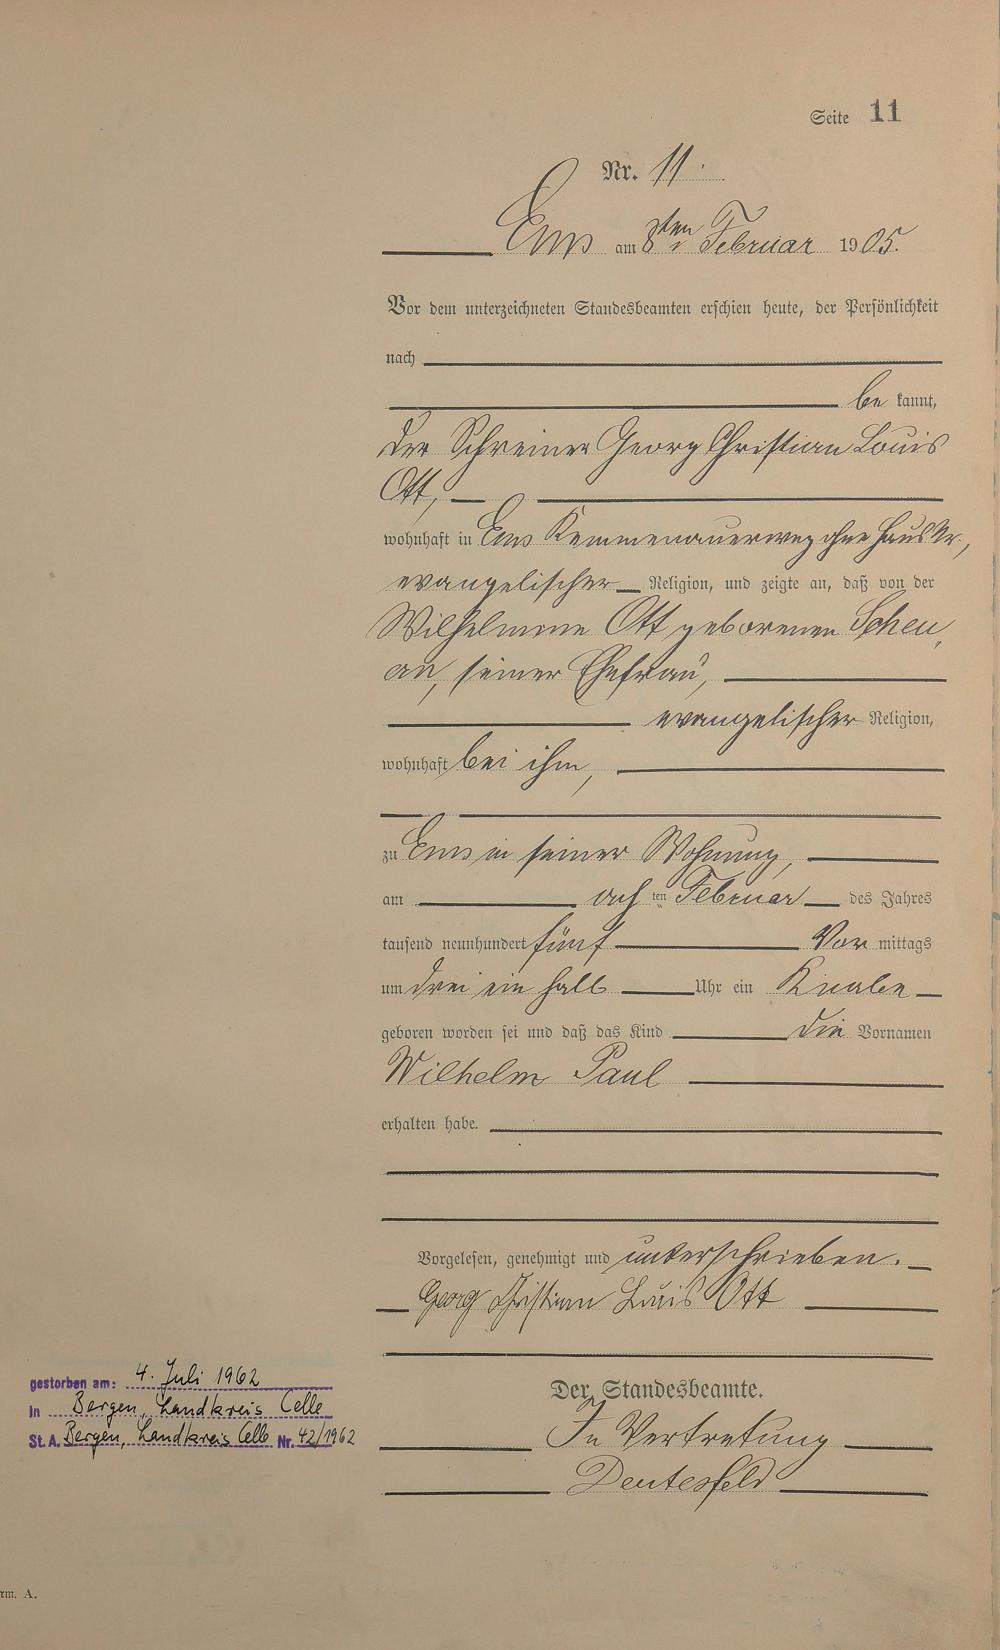 Seite 11
Nr. 11.
Ems am 8ten Februar 1905.
Vor dem unterzeichneten Standesbeamten erschien heute, der Persönlichkeit
nach
be kannt,
der Schreiner Georg Christian Louis
Ott,
wohnhaft in Ems Kemmenauerweg ohne Haus Nr.,
evangelischer Religion, und zeigte an, daß von der
Wilhelmine Ott geborenen Scheu„
an, seiner Ehefrau,
evangelischer Religion,
wohnhaft bei ihm,
zu Ems in seiner Wohnung,
am ach ten Februar des Jahres
tausend neunhundert fünf Vor mittags
um drei ein halb Uhr ein Knabe
geboren worden sei und daß das Kind die Vornamen
Wilhelm Paul
erhalten habe.
Vorgelesen, genehmigt und unterschrieben.
Georg Christian Louis Ott
Der Standesbeamte.
In Vertretung
gestorben am: 4. Juli 1962
in Bergen, Landkreis Celle
St. A. Bergen, Landkreis Celle Nr. 42/1962
rm. A.